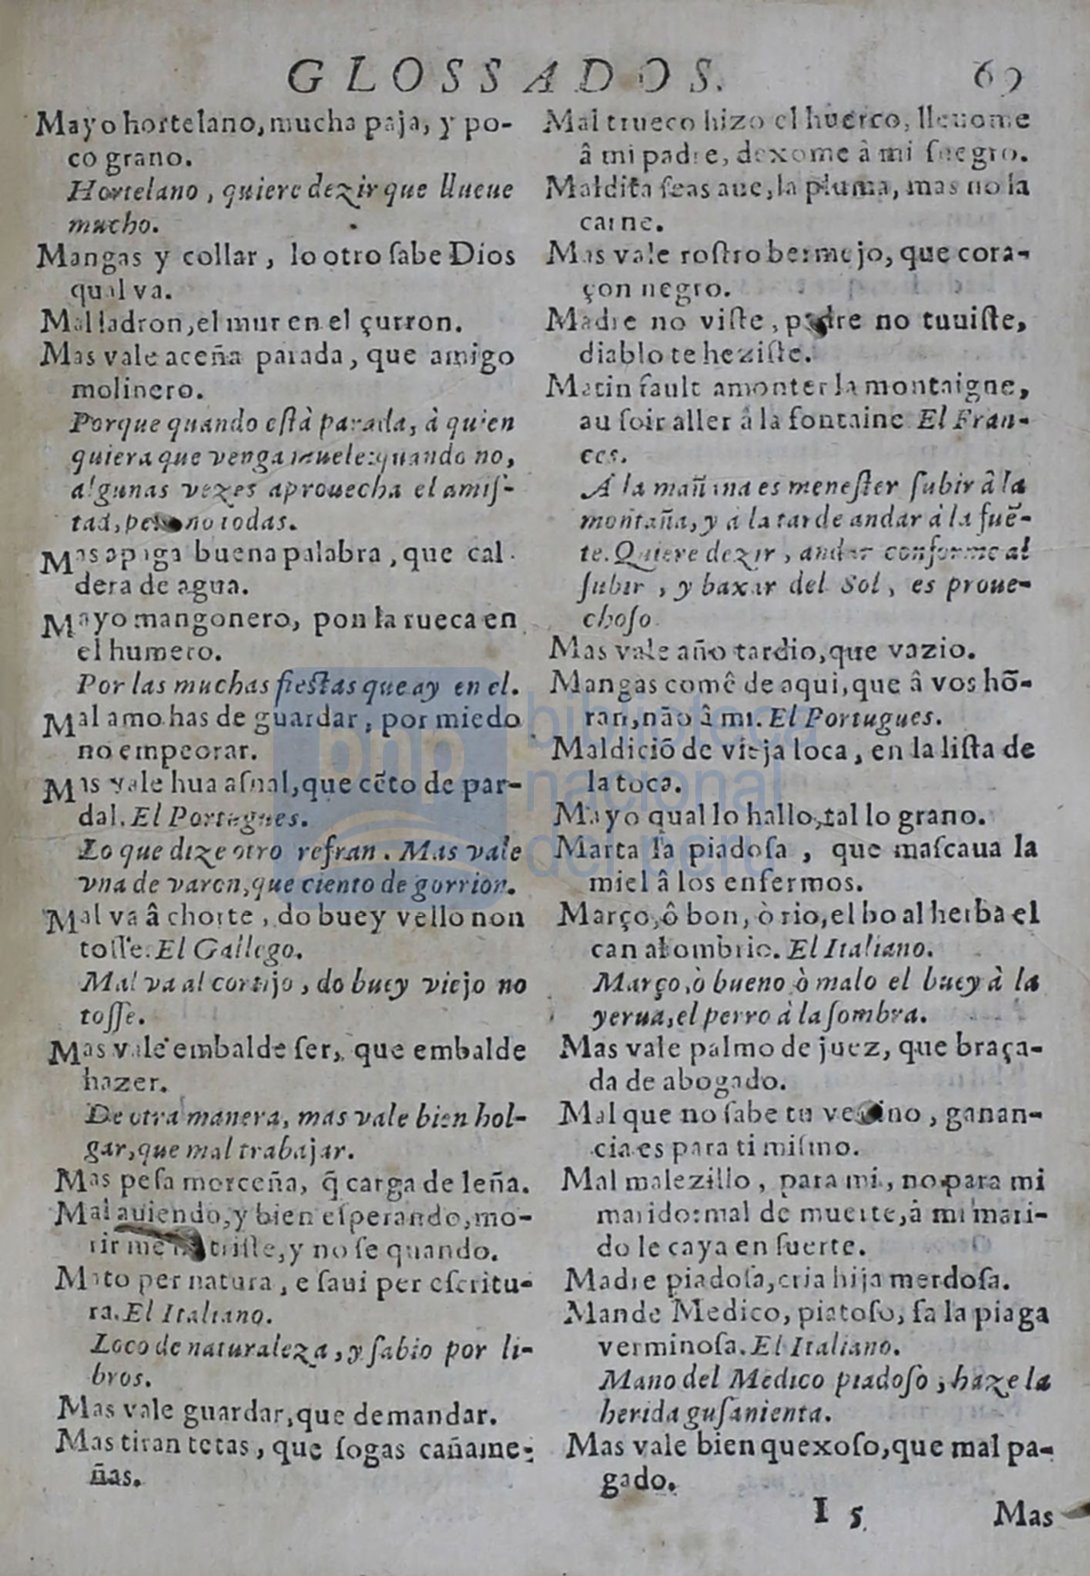 GLOSSADOS. 69
Mayo hortelano, mucha paja, y po-
co grano.
Hortelano, quiere dezir que llueue
mucho.
Mangas y collar, lo otro ſabe Dios
qual va.
Mal ladron, el mur en el çurron.
Mas vale aceña parada, que amigo
molinero.
Porque quando eſtà parada, à quien
quiera que venga muele: quando no,
algunas vezes aprouecha el amiſ-
tad, pero no todas.
Mas apaga buena palabra, que cal-
dera de agua.
Mayo mangonero, pon la rueca en
el humero.
Por las muchas fieſtas que ay en el.
Mal amo has de guardar, por miedo
no empeorar.
Mas vale hua aſnal, que cẽto de par-
dal. El Portugues.
Lo que dize otro refran. Mas vale
vna de varon, que ciento de gorrion.
Mal va â chorte, do buey vello non
toſſe. El Gallego.
Mal va al cortijo, do buey viejo no
toſſe.
Mas vale embalde ſer, que embalde
hazer.
De otra manera, mas vale bien hol-
gar, que mal trabajar.
Mas peſa morceña, q̃ carga de leña.
Mal auiendo, y bien eſperando, mo-
rir me triſte, y no ſe quando.
Mato per natura, e ſaui per eſcritu-
ra. El Italiano.
Loco de naturaleza, y ſabio por li-
bros.
Mas vale guardar, que demandar.
Mas tiran tetas, que ſogas cañame-
ñas.
Mal trueco hizo el huerco, lleuome
â mi padre, dexome â mi ſuegro.
Maldita ſeas aue, la pluma, mas no la
carne.
Mas vale roſtro bermejo, que cora-
çon negro.
Madre no viſte, padre no tuuiſte,
diablo te heziſte.
Matin fault amonter la montaigne,
au ſoir aller â la fontaine El Fran-
ces.
A la mañana es meneſter ſubir â la
montaña, y à la tarde andar à la fuẽ-
te. Quiere dezir, andar conforme al
ſubir, y baxar del Sol, es proue-
choſo.
Mas vale año tardio, que vazio.
Mangas comê de aqui, que â vos hõ-
ran, não â mi. El Portugues.
Maldiciõ de vieja loca, en la liſta de
la toca.
Mayo qual lo hallo, tal lo grano.
Marta la piadoſa, que maſcaua la
miel â los enfermos.
Março, ô bon, ò rio, el bo al herba el
can al ombrio. El Italiano.
Março, ò bueno ò malo el buey à la
yerua, el perro à la ſombra.
Mas vale palmo de juez, que braça-
da de abogado.
Mal que no ſabe tu vezino, ganan-
cia es para ti miſmo.
Mal malezillo, para mi, no para mi
marido: mal de muerte, â mi mari-
do le caya en ſuerte.
Madre piadoſa, cria hija merdoſa.
Mande Medico, piatoſo, fa la piaga
verminoſa. El Italiano.
Mano del Medico piadoſo, haze la
herida guſanienta.
Mas vale bien quexoſo, que mal pa-
gado.
I 5 Mas
bnp biblioteca
nacional
del perú